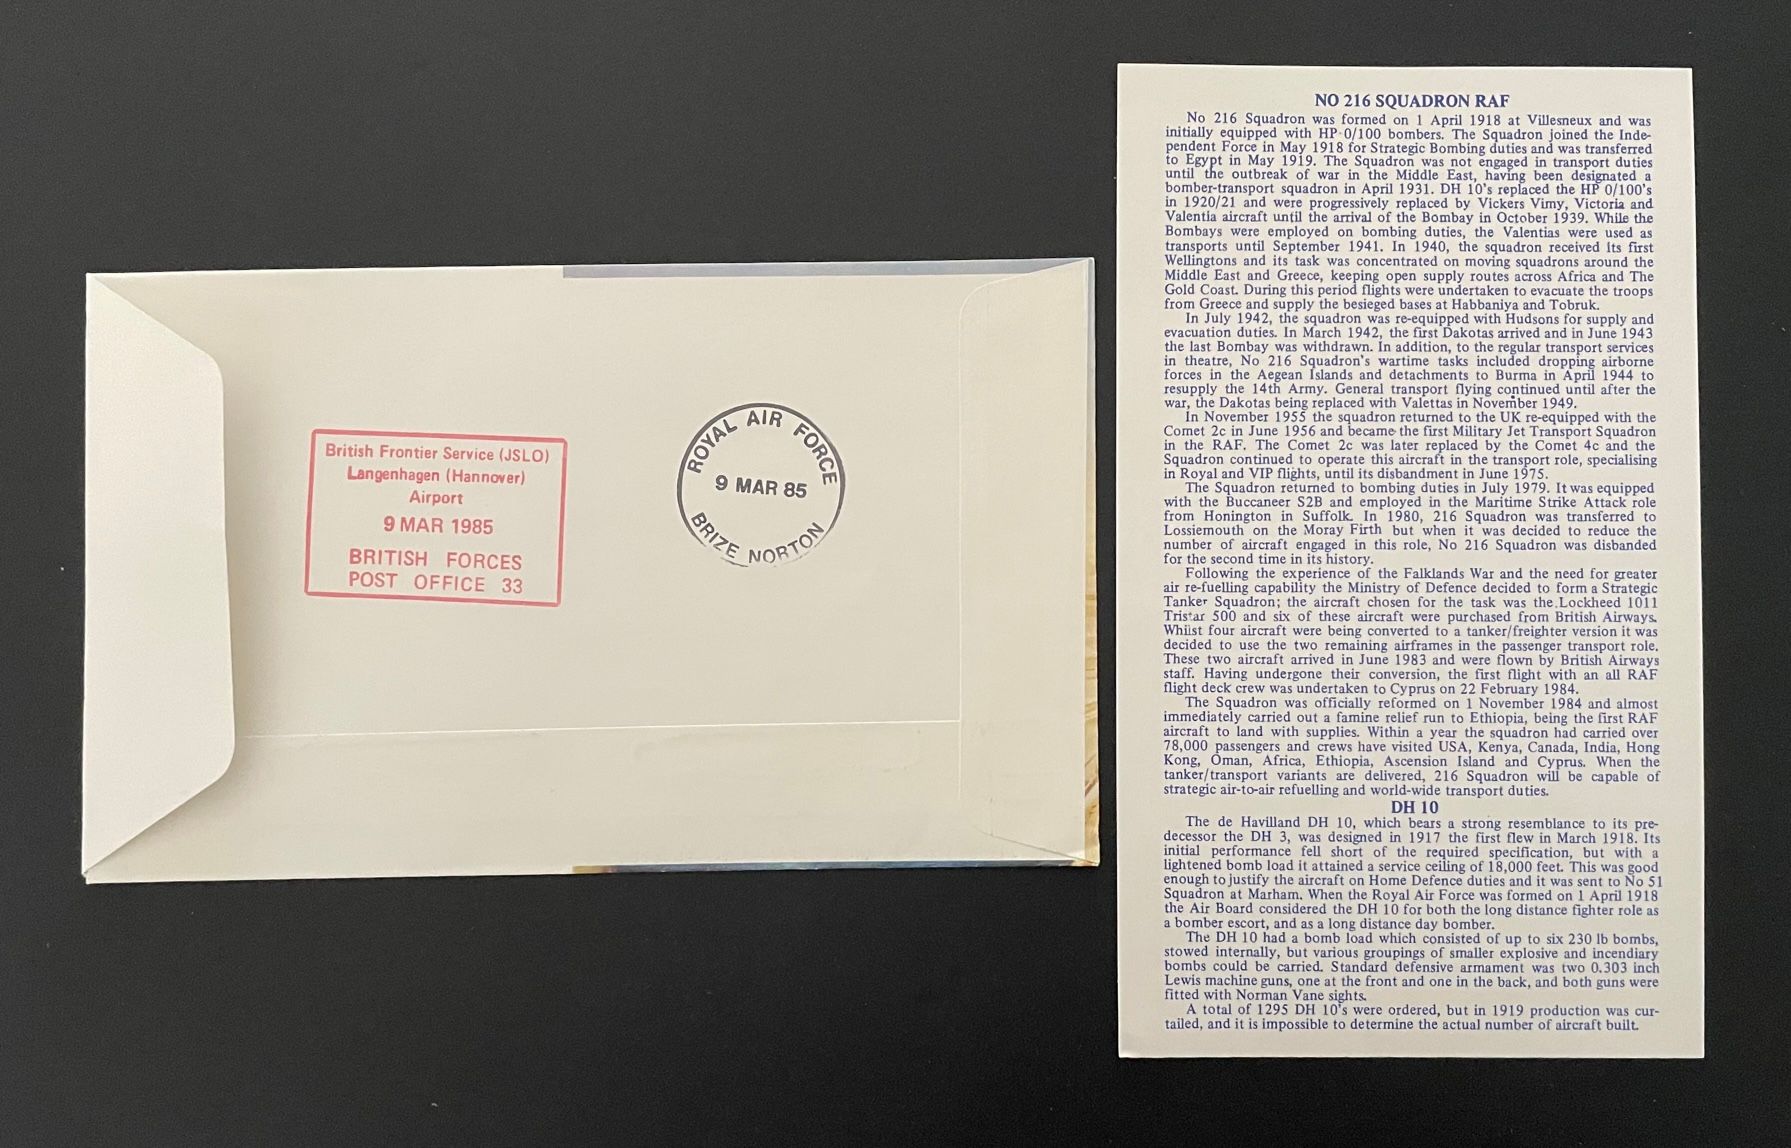 British Frontier Service (JSLO)
Langenhagen (Hannover)
Airport
9 MAR 1985
BRITISH FORCES
POST OFFICE 33
ROYAL AIR FORCE
9 MAR 85
BRIZE NORTON
NO 216 SQUADRON RAF
No 216 Squadron was formed on 1 April 1918 at Villesneux and was
initially equipped with HP 0/100 bombers. The Squadron joined the Inde-
pendent Force in May 1918 for Strategic Bombing duties and was transferred
to Egypt in May 1919. The Squadron was not engaged in transport duties
until the outbreak of war in the Middle East, having been designated a
bomber-transport squadron in April 1931. DH 10's replaced the HP 0/100's
in 1920/21 and were progressively replaced by Vickers Vimy, Victoria and
Valentia aircraft until the arrival of the Bombay in October 1939. While the
Bombays were employed on bombing duties, the Valentias were used as
transports until September 1941. In 1940, the squadron received its first
Wellingtons and its task was concentrated on moving squadrons around the
Middle East and Greece, keeping open supply routes across Africa and The
Gold Coast. During this period flights were undertaken to evacuate the troops
from Greece and supply the besieged bases at Habbaniya and Tobruk.
In July 1942, the squadron was re-equipped with Hudsons for supply and
evacuation duties. In March 1942, the first Dakotas arrived and in June 1943
the last Bombay was withdrawn. In addition, to the regular transport services
in theatre, No 216 Squadron's wartime tasks included dropping airborne
forces in the Aegean Islands and detachments to Burma in April 1944 to
resupply the 14th Army. General transport flying continued until after the
war, the Dakotas being replaced with Valettas in November 1949.
In November 1955 the squadron returned to the UK re-equipped with the
Comet 2c in June 1956 and became the first Military Jet Transport Squadron
in the RAF. The Comet 2c was later replaced by the Comet 4c and the
Squadron continued to operate this aircraft in the transport role, specialising
in Royal and VIP flights, until its disbandment in June 1975.
The Squadron returned to bombing duties in July 1979. It was equipped
with the Buccaneer S2B and employed in the Maritime Strike Attack role
from Honington in Suffolk. In 1980, 216 Squadron was transferred to
Lossiemouth on the Moray Firth but when it was decided to reduce the
number of aircraft engaged in this role, No 216 Squadron was disbanded
for the second time in its history.
Following the experience of the Falklands War and the need for greater
air re-fuelling capability the Ministry of Defence decided to form a Strategic
Tanker Squadron; the aircraft chosen for the task was the Lockheed 1011
Tristar 500 and six of these aircraft were purchased from British Airways.
Whilst four aircraft were being converted to a tanker/freighter version it was
decided to use the two remaining airframes in the passenger transport role.
These two aircraft arrived in June 1983 and were flown by British Airways
staff. Having undergone their conversion, the first flight with an all RAF
flight deck crew was undertaken to Cyprus on 22 February 1984.
The Squadron was officially reformed on 1 November 1984 and almost
immediately carried out a famine relief run to Ethiopia, being the first RAF
aircraft to land with supplies. Within a year the squadron had carried over
78,000 passengers and crews have visited USA, Kenya, Canada, India, Hong
Kong, Oman, Africa, Ethiopia, Ascension Island and Cyprus. When the
tanker/transport variants are delivered, 216 Squadron will be capable of
strategic air-to-air refuelling and world-wide transport duties.
DH 10
The de Havilland DH 10, which bears a strong resemblance to its pre-
decessor the DH 3, was designed in 1917 the first flew in March 1918. Its
initial performance fell short of the required specification, but with a
lightened bomb load it attained a service ceiling of 18,000 feet. This was good
enough to justify the aircraft on Home Defence duties and it was sent to No 51
Squadron at Marham. When the Royal Air Force was formed on 1 April 1918
the Air Board considered the DH 10 for both the long distance fighter role as
a bomber escort, and as a long distance day bomber.
The DH 10 had a bomb load which consisted of up to six 230 lb bombs,
stowed internally, but various groupings of smaller explosive and incendiary
bombs could be carried. Standard defensive armament was two 0.303 inch
Lewis machine guns, one at the front and one in the back, and both guns were
fitted with Norman Vane sights.
A total of 1295 DH 10's were ordered, but in 1919 production was cur-
tailed, and it is impossible to determine the actual number of aircraft built.